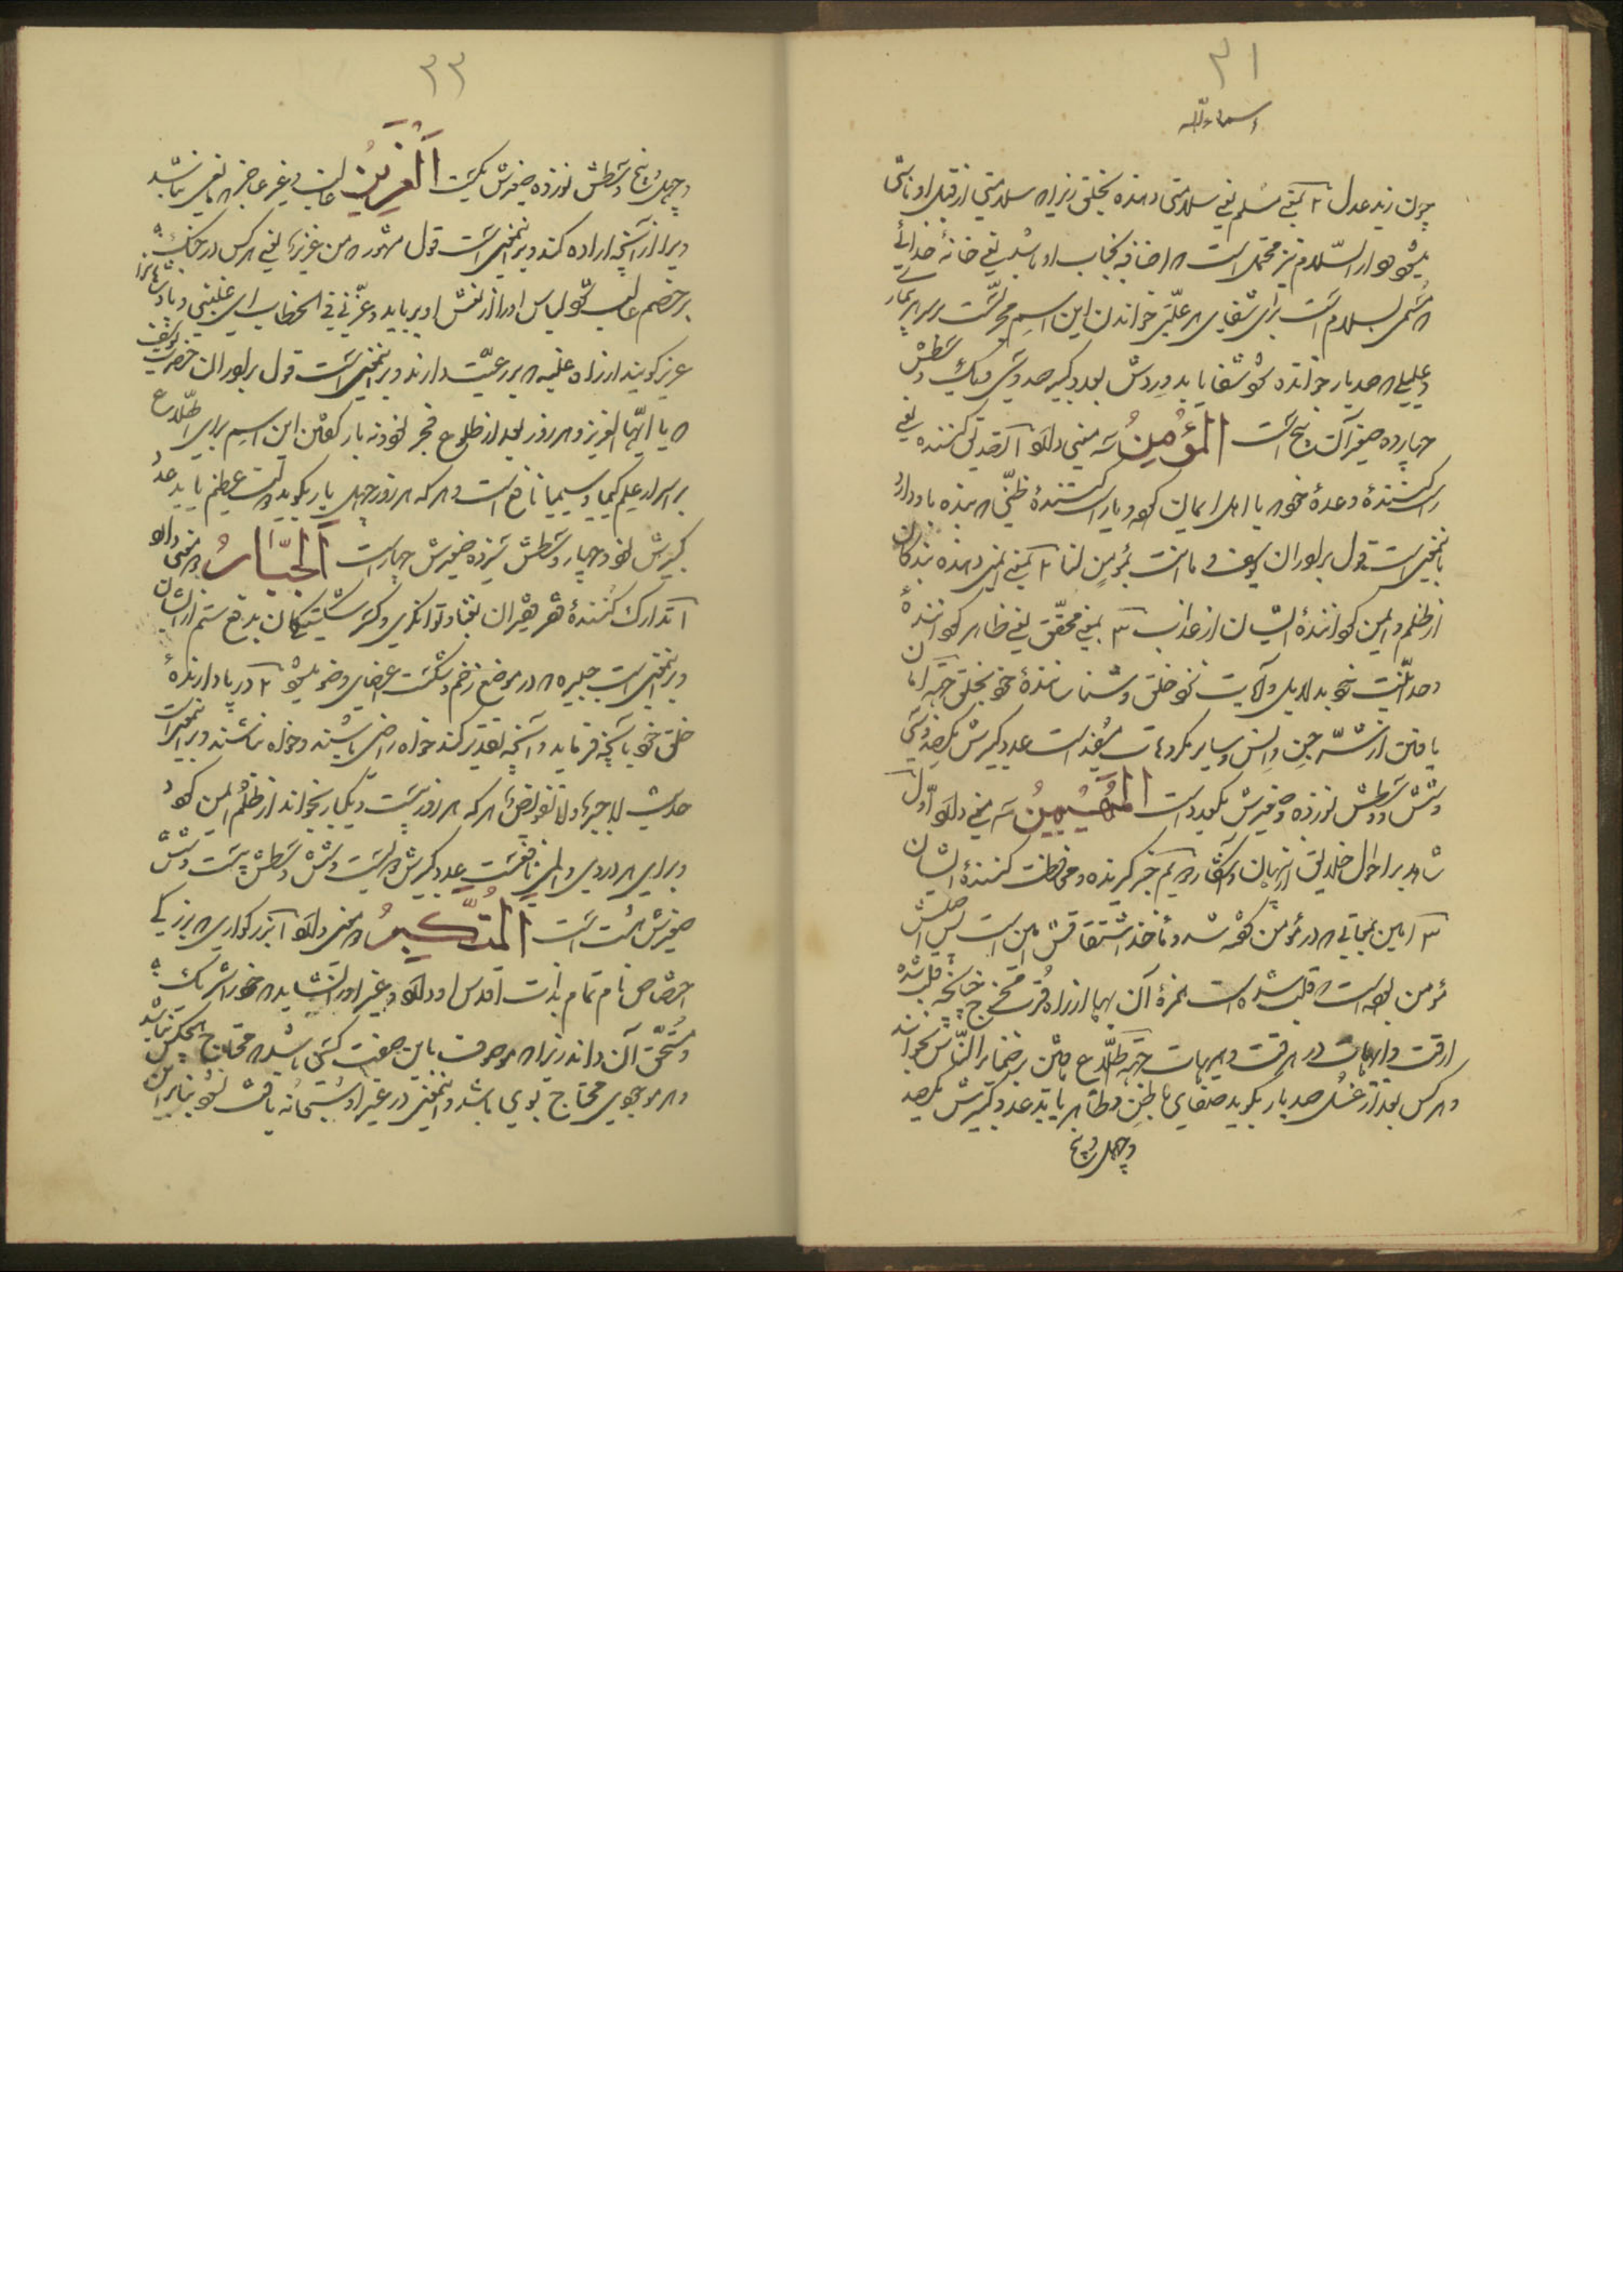 ٣١
اسماء الله
چون زید عدل ٢ بمعنی مسلم یعنی سلامتی دهنده بخلق زیرا که سلامتی از قبل او ناشی
میشود و دار السّلام نیز محتمل است که اضافه بجناب او باشد یعنی خانهٔ خدائی
که مسمی بسلام است برای شفای هر علّتی خواندن این اسم مجرّبست و بر هر بیمار
و علیلی که صد بار خوانده شود شفا یابد و وردش بعدد کبیر صد و سی و یک وسطش
چهارده صغیر آن پنج است المؤمن سه معنی دارد ١ تصدیق کننده یعنی
راست کنندهٔ وعدهٔ خود با اهل ایمان که و یا راست کنندهٔ ظنّی که بنده باو دارد
باینمعنی است قول برادران یوسف و ما انت بمؤمن لنا ٢ بمعنی ایمنی دهنده بندگان
از ظلم و ایمن گردانندهٔ ایشان از عذاب ٣ بمعنی محقّق یعنی ظاهر گردانندهٔ
وحدانیّت خود بدلایل و آیات نزد خلق و شناسانندهٔ خود بخلق جهة امان
یافتن از شرّ جن و انس و سایر مکروهات مفید است عدد کبیرش یکصد و سی
و شش و وسطش نوزده و صغیرش یکعدد است المهیمن سه معنی دارد اوّل
شاهد بر احوال خلایق از نهان و آشکار دویم خبر گیرنده و محافظت کنندهٔ ایشان
٣ امین بمعنائی که در مؤمن گفته شد و مأخذ اشتقاقش امن است پس اصلش
مؤمن بوده است که قلب شده است همزهٔ آن بها از راه قرب مخرج چنانچه قلب شده
ارقت و ایهات در هرقت و هیهات جهة اطّلاع یافتن بر ضمایر النّاس بخوانند
و هر کس بعد از غسل صد بار بگوید صفای باطن و ظاهر یابد عدد کبیرش یکصد
و چهل و پنج
٣٣
و چهل و پنج وسطش نوزده صغیرش یکیست العزیز غالب و غیر عاجز که مانعی نباشد
ویرا از آنچه اراده کند و برینمعنی است قول مشهور که من عزّ بزّ یعنی هر کس در جنگ
بر خصم غالب شود لباس او را از تنش او برباید و عزّنی فی الخطاب ای غلبنی و پادشاهانرا
عزیز گویند از راه غلبه که بر رعیّت دارند و برینمعنی است قول برادران حضرت یوسف
که یا ایّها العزیز و هر روز بعد از طلوع فجر نود و نه بار گفتن این اسم برای اطّلاع
بر اسرار علم کیمیا و سیمیا نافع است و هر که هر روز چهل بار بگوید دولت عظیم یابد عدد
کبیرش نود و چهار وسطش سیزده صغیرش چهار است الجبّار دو معنی دارد
١ تدارک کنندهٔ فقر فقیران بغنا و توانگری و کسر شکستگان بدفع ستم از ایشان
و برینمعنی است جبیره که در موضع زخم و شکست اعضای وضو میشود ٢ در پا دارندهٔ
خلق خود بآنچه فرماید و آنچه تقدیر کند خواه راضی باشند و خواه نباشند و برینمعنی است
حدیث لا جبر و لا تفویض هر که هر روز بیست و یکبار بخواند از ظلم ایمن گردد
و برای هر دردی و المی نافعست عدد کبیرش دویست و شش وسطش بیست و شش
صغیرش هشت است المتکبّر دو معنی دارد ١ بزرگواری که بزرگی
اختصاص تام تمام بذات اقدس او دارد و غیر او را نشاید که خود را شریک
و مستحق آن داند زیرا که موصوف باین صفت کسی باشد که محتاج بهیچکس نباشد
و هر موجودی محتاج بوی باشد و اینمعنی در غیر او سبحانه یافت نشود بنابراین